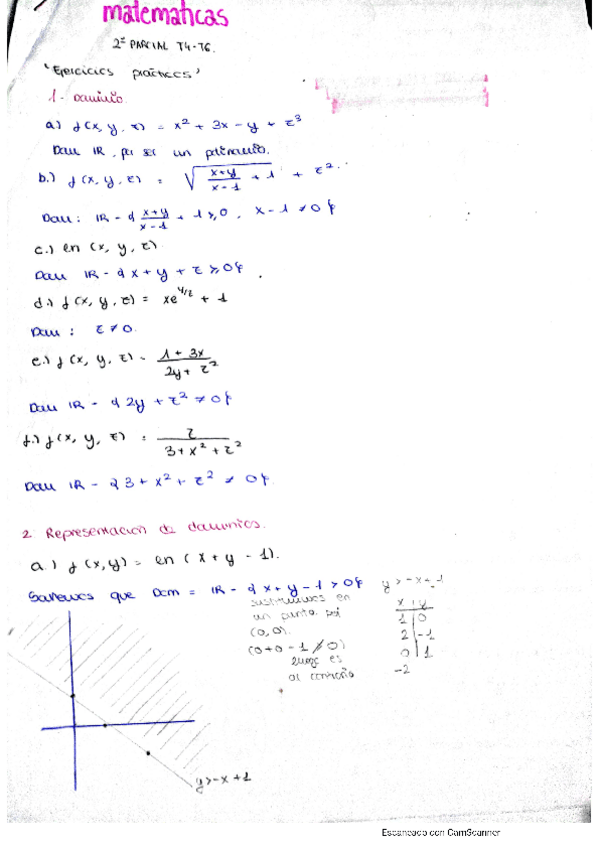 matematicas
2º PARCIAL T4-T6.
"Ejercicios prácticos"
1- Dominio.
a) f(x, y, z) = x² + 3x - y + z³
Dom IR, por ser un polinomio.
b.) f(x, y, z) = √(x+y / x-1 + 1) + z².
Dom: IR - { x+y / x-1 + 1 ≥ 0, x - 1 ≠ 0 }
c.) en (x, y, z).
Dom IR - { x + y + z ≥ 0 }
d.) f(x, y, z) = xe^(y/z) + 1
Dom : z ≠ 0.
e.) f(x, y, z) = 1 + 3x / 2y + z²
Dom IR - { 2y + z² ≠ 0 }
f.) f(x, y, z) = z / 3 + x² + z²
Dom IR - { 3 + x² + z² ≠ 0 }
2 Representación de dominios.
a.) f(x,y) = en (x + y - 1).
Sabemos que Dom = IR - { x + y - 1 > 0 }
sustituimos en
un punto
(0, 0).
(0+0 - 1 ≯ 0)
luego es
al contrario
y > -x + 1
x | y
1 | 0
2 | -1
0 | 1
-2
y > -x + 1
Escaneado con CamScanner